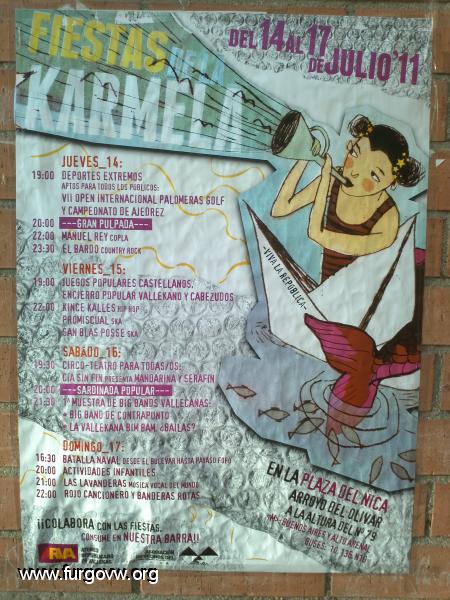 FIESTAS DE LA
KARMELA
DEL 14 AL 17
DE JULIO '11
JUEVES_14:
19:00 DEPORTES EXTREMOS
APTOS PARA TODOS LOS PÚBLICOS:
VII OPEN INTERNACIONAL PALOMERAS GOLF
Y CAMPEONATO DE AJEDREZ
20:00 ---GRAN PULPADA---
22:00 MANUEL REY COPLA
23:30 EL BARDO COUNTRY ROCK
VIERNES_15:
19:00 JUEGOS POPULARES CASTELLANOS,
ENCIERRO POPULAR VALLEKANO Y CABEZUDOS
22:00 KINCE KALLES HIP HOP
PROMISCUAL SKA
SAN BLAS POSSE SKA
-VIVA LA REPÚBLICA-
SABADO_16:
19:30 CIRCO-TEATRO PARA TODAS/OS:
CIA SIN FIN PRESENTA MANDARINA Y SERAFIN
20:00 ---SARDINADA POPULAR---
21:30 1ª MUESTRA DE BIG BANDS VALLECANAS:
• BIG BAND DE CONTRAPUNTO
• LA VALLEKANA BIM BAM, ¿BAILAS?
DOMINGO_17:
16:30 BATALLA NAVAL DESDE EL BULEVAR HASTA PAYASO FOFÓ
20:00 ACTIVIDADES INFANTILES
21:00 LAS LAVANDERAS MÚSICA VOCAL DEL MUNDO
22:00 ROJO CANCIONERO Y BANDERAS ROTAS
EN LA PLAZA DEL NICA
ARROYO DEL OLIVAR
A LA ALTURA DEL Nº 79
BUENOS AIRES Y ALTO ARENAL
BUSES: 10, 136, N10
¡¡COLABORA CON LAS FIESTAS,
CONSUME EN NUESTRA BARRA!!
ATENEO
REPUBLICANO
DE VALLECAS
ASOCIACIÓN
www.furgovw.org